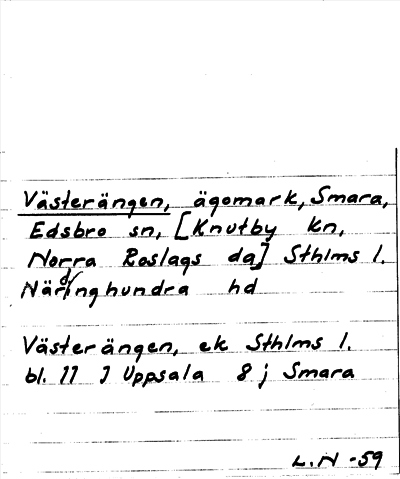 Västerängen, ägomark, Smara,
Edsbro sn, [Knutby kn,
Norra Roslags da] Sthlms l.
Närdinghundra hd
Västerängen, ek Sthlms l.
bl. 11 J Uppsala 8 j Smara
L.N -59